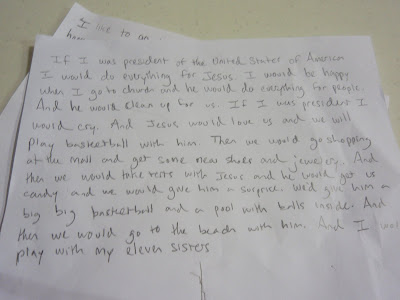 I like to an
ha
If I was president of the United States of America
I would do everything for Jesus. I would be happy
when I go to church and he would do everything for people.
And he would clean up for us. If I was president I
would cry. And Jesus would love us and we will
play basketball with him. Then we would go shopping
at the mall and get some new shoes and jewelery. And
then we would take rests with Jesus and he would get us
candy and we would give him a surprise. We'd give him a
big big basketball and a pool with balls inside. And
then we would go to the beach with him. And I
play with my eleven sisters